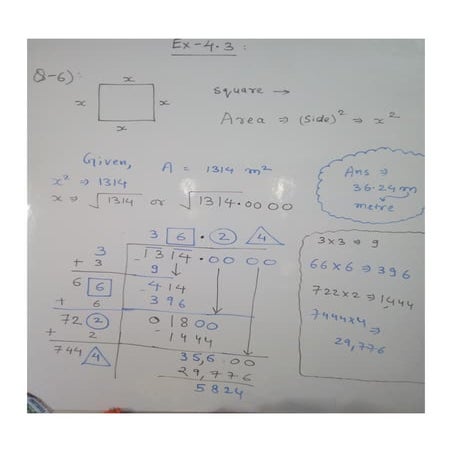 Ex-4.3:
Q-6):
x
x x
x
square →
Area ⇒ (side)² ⇒ x²
Given, A = 1314 m²
x² ⇒ 1314
x ⇒ √1314 or √1314.0000
Ans ⇒
36.24m
metre
3 6 . 2 4
3
+ 3
1314.00 00
- 9
6 6
+ 6
- 414
396
72 2
+ 2
0 1800
- 1444
744 4
35,6.00
29,77.6
5824
3×3 ⇒ 9
66×6 ⇒ 396
722×2 ⇒ 1444
7444×4
⇒
29,776